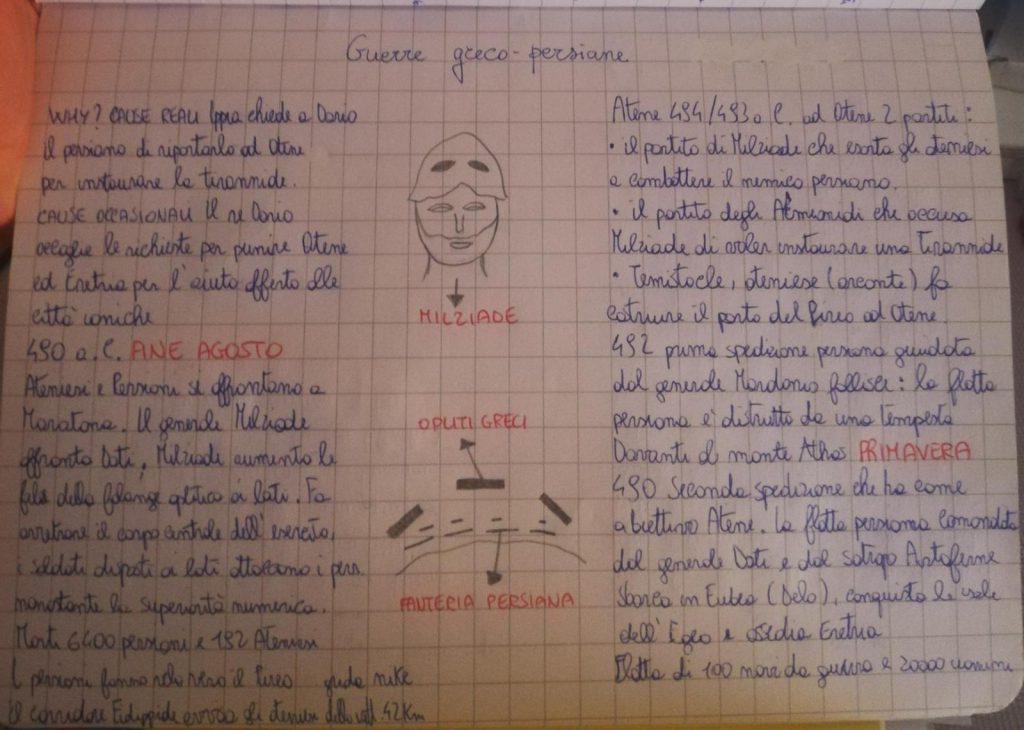 Guerre greco-persiane
WHY? CAUSE REALI Ippia chiede a Dario
il persiano di riportarlo ad Atene
per instaurare la tirannide.
CAUSE OCCASIONALI Il re Dario
accoglie le richieste per punire Atene
ed Eretria per l'aiuto offerto alle
città ioniche
490 a.C. FINE AGOSTO
Ateniesi e Persiani si affrontano a
Maratona. Il generale Milziade
affronta Dati, Milziade aumenta le
fila della falange oplitica ai lati. Fa
arretrare il corpo centrale dell'esercito,
i soldati disposti ai lati attaccano i pers.
nonostante la superiorità numerica.
Morti 6400 persiani e 192 Ateniesi
I persiani fanno rotta verso il Pireo grida nike
il corridore Fidippide avvisa gli ateniesi della vitt. 42Km
MILZIADE
OPLITI GRECI
FANTERIA PERSIANA
Atene 494/493 a.C. ad Atene 2 partiti:
• il partito di Milziade che esorta gli ateniesi
a combattere il nemico persiano.
• il partito degli Alcmeonidi che accusa
Milziade di voler instaurare una Tirannide
• Temistocle, ateniese (arconte) fa
costruire il porto del Pireo ad Atene.
492 prima spedizione persiana guidata
dal generale Mardonio fallisce: la flotta
persiana è distrutta da una tempesta
Davanti al monte Athos PRIMAVERA
490 Seconda spedizione che ha come
obiettivo Atene. La flotta persiana comandata
dal generale Dati e dal satrapo Artaferne
sbarca in Eubea (Delo), conquista le isole
dell'Egeo e assedia Eretria
Flotta di 100 navi da guerra e 20000 uomini